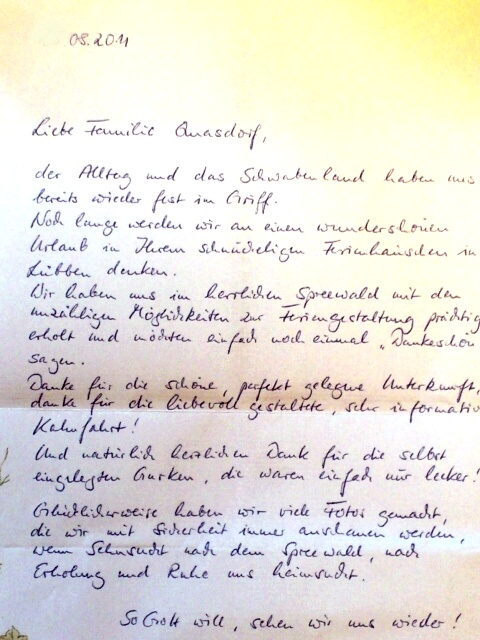 08.2011
Liebe Familie Quasdorf,
der Alltag und das Schwabenland haben uns
bereits wieder fest im Griff.
Noch lange werden wir an einen wunderschönen
Urlaub in Ihrem schnuckeligen Ferienhäuschen in
Lübben denken.
Wir haben uns im herrlichen Spreewald mit den
unzähligen Möglichkeiten zur Feriengestaltung prächtig
erholt und möchten einfach noch einmal „Dankeschön
sagen.
Danke für die schöne, perfekt gelegene Unterkunft,
danke für die liebevoll gestaltete, sehr informativ
Kahnfahrt!
Und natürlich herzlichen Dank für die selbst
eingelegten Gurken, die waren einfach nur lecker!
Glücklicherweise haben wir viele Fotos gemacht,
die wir mit Sicherheit immer anschauen werden,
wenn Sehnsucht nach dem Spreewald, nach
Erholung und Ruhe uns heimsucht.
So Gott will, sehen wir uns wieder!